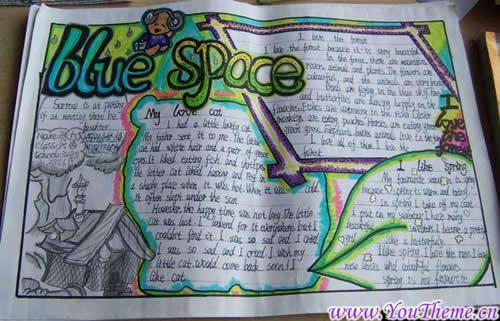 blue space
I love the forest
I love the forest because it is very beautiful
In the forest, there are mountains
rivers, animals and plants. The flowers are
colourful, and the animals are
Birds are flying in the blue sky. Bees
and butterflies are dancing happily on the
flowers. Fishes are swimming in the River. Clever
monkeys are eating peaches. Horses are eating green
grass. Elephants
I love all of them. I love the
forest
I love
Sorrow is at parting
if at meeting there be
laughter
Name:
class:
School:
My love cat
I had a little lovely cat.
My father sent it to me. The little
cat had white hair and a pair of green
eyes. It liked eating fish and
The little cat liked
a shady place when it was hot. When it was cold,
it often slept under the sun.
However, the happy time was not long. The little
cat was lost. I looked for it everywhere but I
couldn't find it. I was so sad and I cried
I was so sad, and I cried. I wish my
little cat would come back soon! I
like cat.
I like Spring
My favourite season is spring
because spring is warm and
In spring I take off my coat
I put on my sweater. I have many
beautiful sweaters. I became a pretty
girl like a butterfly.
I like spring. I love the
new leaves and colourful flowers
spring is my favourite
www.YouTheme.cn